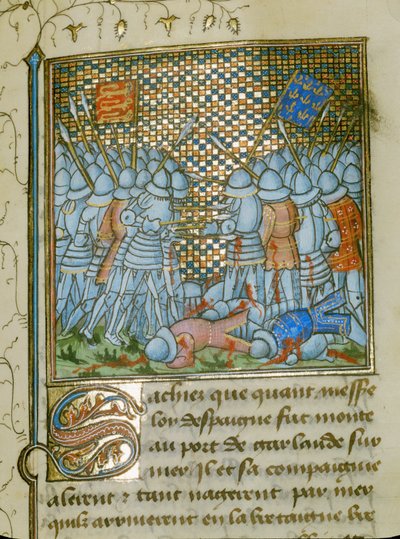 Sachies que quant messe
loys despaigne fut monte
au port de garlande sur
mer il et sa compaignie
alerent & tant nagerent par mer
quilz arriverent en la bretaigne bre